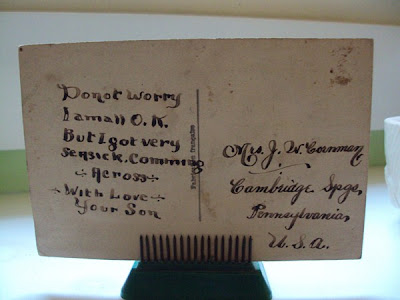 Do not Worry
I am all O.K.
But I got very
Seasick. Comming
÷ Across ÷
÷ With Love ÷
Your Son
Mrs. J. W. Cornman,
Cambridge Spgs,
Pennsylvania,
U.S.A.